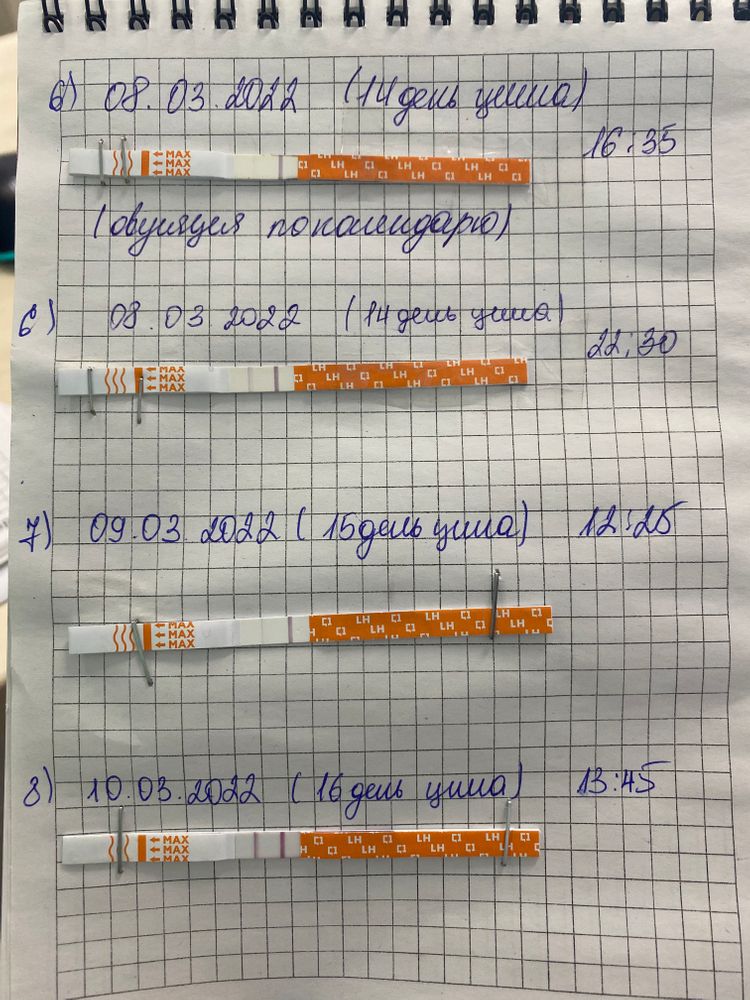 6) 08.03.2022 (14 день цикла)
16:35
← MAX
← MAX
← MAX
LH LH LH LH
LH LH LH LH
(овуляция по календарю)
6) 08.03 2022 (14 день цикла)
22:30
← MAX
← MAX
← MAX
LH LH LH LH
LH LH LH
7) 09.03.2022 (15 день цикла) 12:25
← MAX
← MAX
← MAX
LH LH LH
LH LH LH
8) 10.03.2022 (16 день цикла) 13:45
← MAX
← MAX
← MAX
LH LH LH
LH LH LH LH